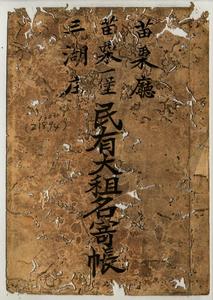 苗栗廳
苗栗一堡
三湖庄
民有大租名寄帳